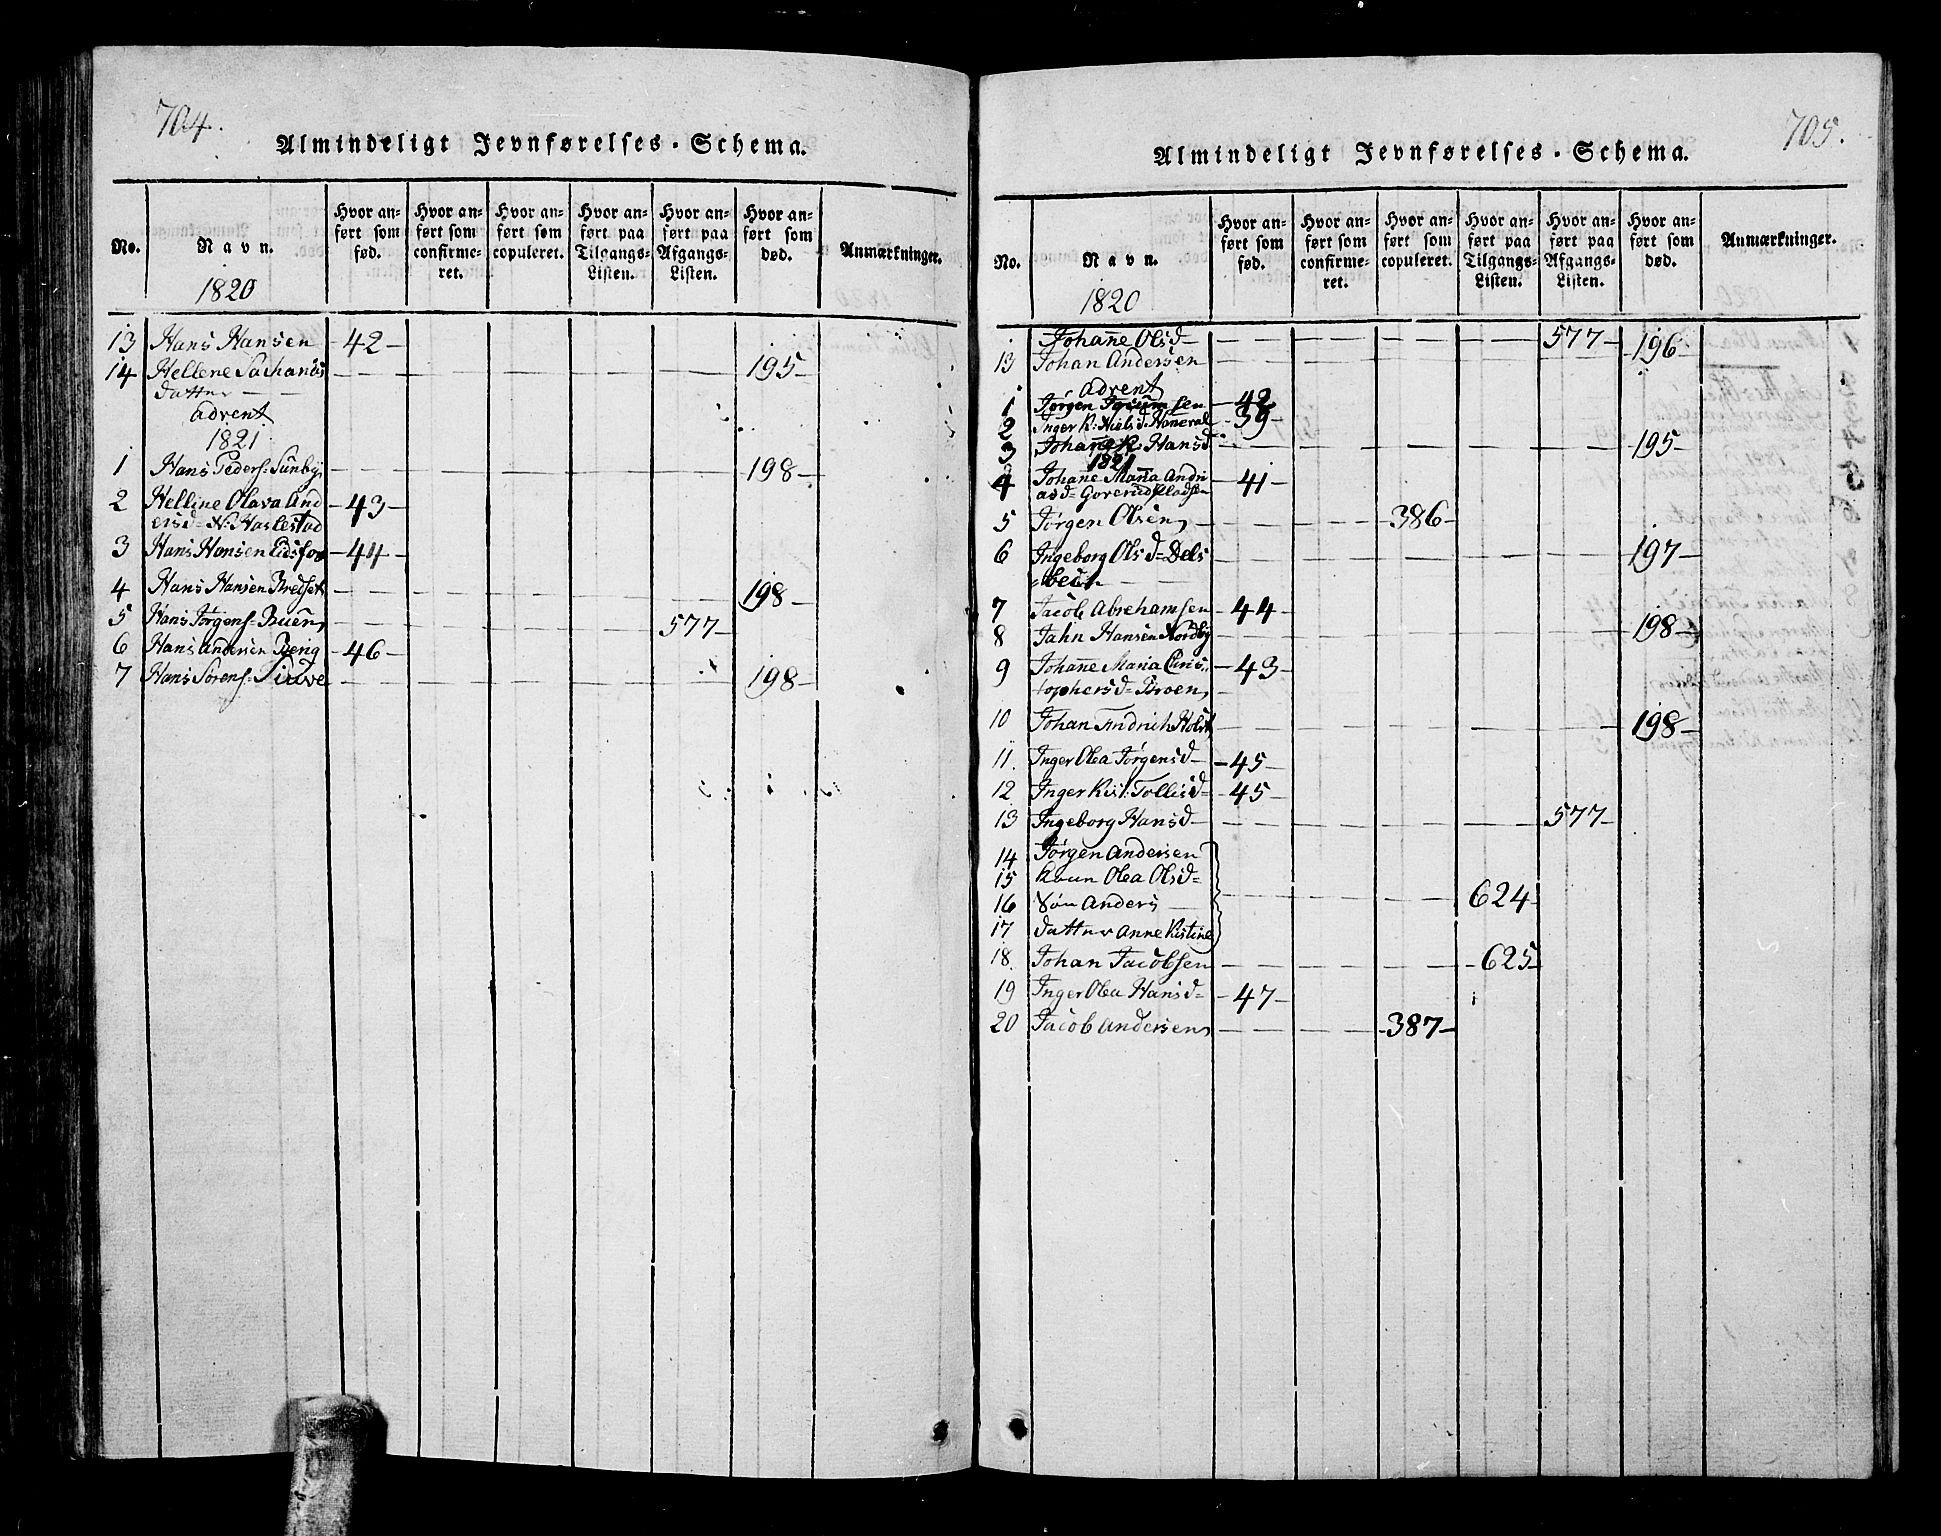 704.
Almindeligt Jevnførelses-Schema.
No. Navn. Hvor anført som fød. Hvor anført som confirmeret. Hvor anført som copuleret. Hvor anført paa Tilgangs-Listen. Hvor anført paa Afgangs-Listen. Hvor anført som død. Anmærkninger.
1820
13 Hans Hansen 42
14 Hellene 195
Datter
advent
1821.
1 Hans Peders: Sundby 198
2 Helline Olava And
ersd= N: Haslestad 43
3 Hans Hansen Eidsfos 44
4 Hans Hansen 198
5 Hans Jørgens: Buen 577
6 Hans Andersen Beng 46
7 Hans Sørens: 198
705.
Almindeligt Jevnførelses-Schema.
No. Navn. Hvor anført som fød. Hvor anført som confirmeret. Hvor anført som copuleret. Hvor anført paa Tilgangs-Listen. Hvor anført paa Afgangs-Listen. Hvor anført som død. Anmærkninger.
1820
Johanne Olsd 577
13 Johan Andersen 196
advent
1 Jørgen 42
2 Inger K: Nielsd: 39
3 Hansd 195
1821
4 Johane Maria Andri
asd= 41
5 Jørgen Olsen 386
6 Ingeborg Olsd= 197
7 Jacob Abrahamsen 44
8 Jahn Hansen Nordby 198
9 Johanne Maria Chris
tophersd= Broen 43
10 Johan Fredrich Holst 198
11. Inger Olea Jørgensd 45
12 Inger Kist: Tollefsd= 45
13 Ingeborg Hansd 577
14 Jørgen Andersen
15 Olea Olsd=
16 Søn Anders 624
17 Datter Anne Kistine
18. Johan Jacobsen 625
19 Inger Olea Hansd= 47
20 Jacob Andersen 387